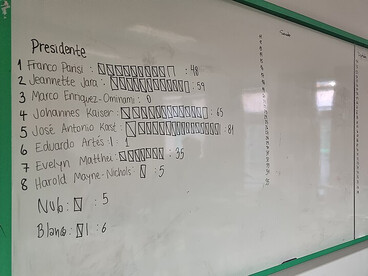 Presidente
1 Franco Parisi : : 48
2 Jeannette Jara : : 59
3 Marco Enríquez-Ominami : 0
4 Johannes Kaiser : : 65
5 José Antonio Kast : : 81
6 Eduardo Artés : 1
7 Evelyn Matthei : : 35
8 Harold Mayne-Nichols : : 5
Nulo : : 5
Blanco : : 6